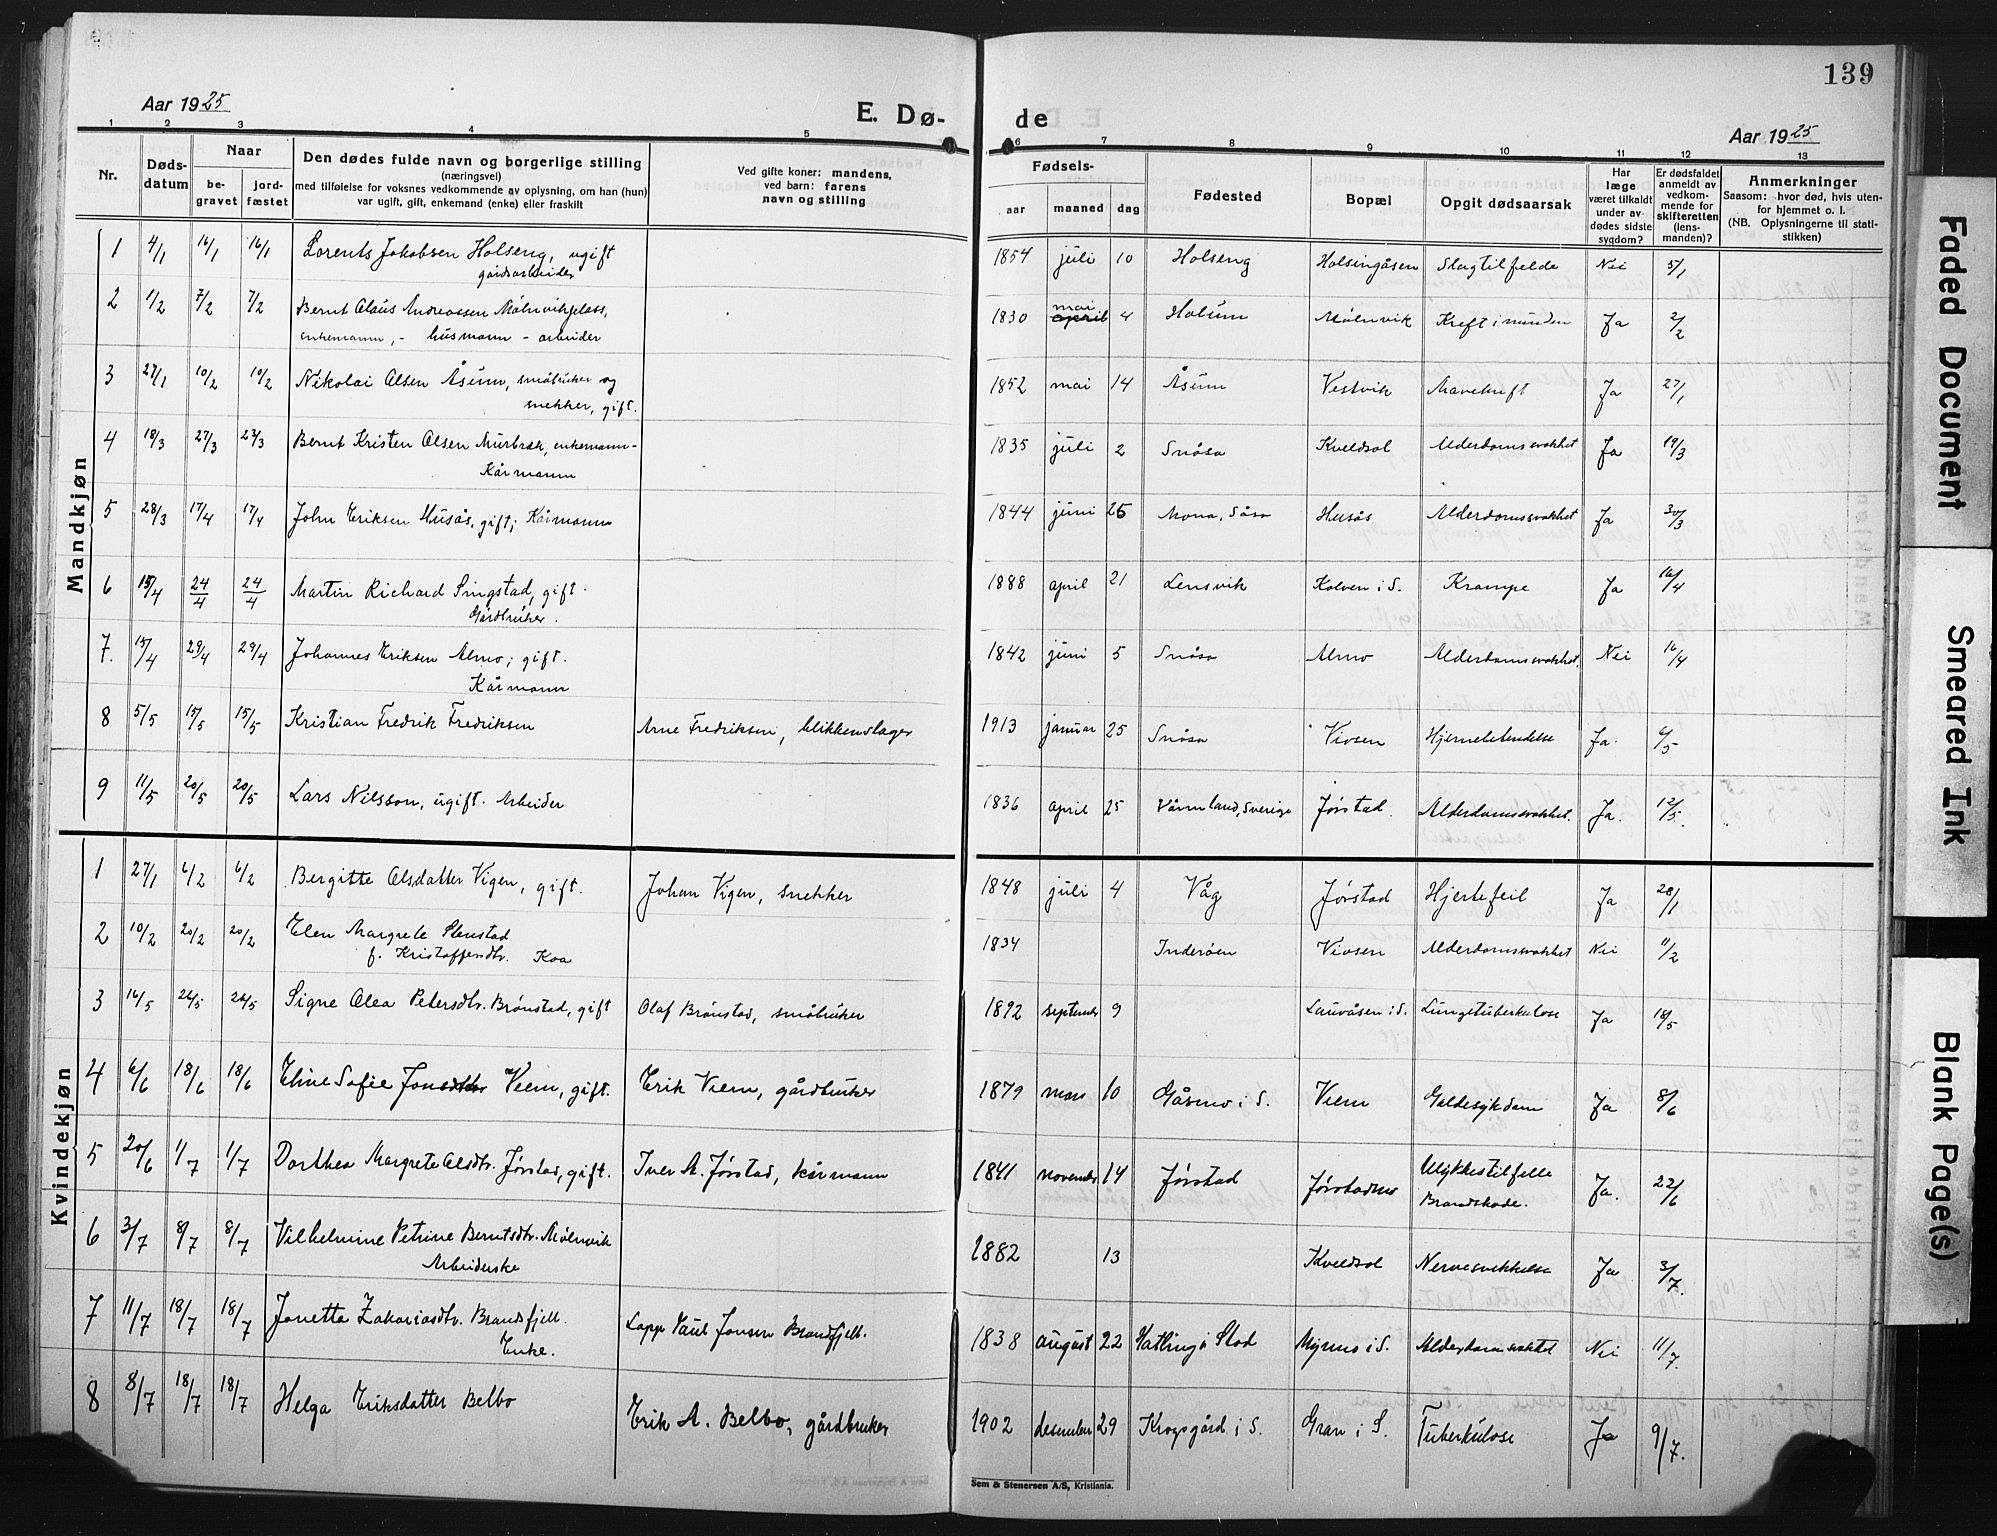 139
Aar 1925
E. Dø-
de
Aar 1925
1 2 3 4 5 6 7 8 9 10 11 12 13
Nr.
Døds-
datum
Naar
be-
gravet
jord-
fæstet
Den dødes fulde navn og borgerlige stilling
(næringsvei)
med tilføielse for voksnes vedkommende av oplysning, om han (hun)
var ugift, gift, enkemand (enke) eller fraskilt
Ved gifte koner: mandens,
ved barn: farens
navn og stilling
Fødsels-
aar maaned dag
Fødested
Bopæl
Opgit dødsaarsak
Har
læge
været tilkaldt
under av-
dødes sidste
sygdom?
Er dødsfaldet
anmeldt av
vedkom-
mende for
skifteretten
(lens-
manden)?
Anmerkninger
Saasom: hvor død, hvis uten-
for hjemmet o. l.
(NB. Oplysningerne til stati-
stikken)
Mandkjøn
1 4/1 16/1 16/1 Lorents Jakobsen Holseng, ugift 1854 juli 10 Holseng Holsingåsen Slagtilfelde Nei 5/1
gårdsarbeider
2 1/2 7/2 7/2 Bernt Olaus Andreassen Mølnvikplass, 1830 mai april 4 Holum Mølnvik Kreft i munden Ja 2/2
enkemann, - husmann - arbeider
3 27/1 10/2 10/2 Nikolai Olsen Åsum, småbruker og 1852 mai 14 Åsum Vestvik Mavekreft Ja 27/1
snekker, gift.
4 18/3 27/3 27/3 Bernt Kristen Olsen Murbræk, enkemann- 1835 juli 2 Snåsa Kveldsol Alderdomssvakhet Ja 19/3
Kårmann
5 28/3 17/4 17/4 John Eriksen Husås, gift; Kårmann 1844 juni 25 Mona, Snåsa Husås Alderdomssvakhet Ja 30/3
6 15/4 24/4 24/4 Martin Richard Singstad, gift. 1888 april 21 Lensvik Kolven i S. Krampe Ja 16/4
Gårdbruker.
7. 15/4 29/4 29/4 Johannes Eriksen Almo; gift. 1842 juni 5 Snåsa Almo Alderdomssvakhet. Nei 16/4
Kårmann
8 5/5 15/5 15/5 Kristian Fredrik Fredriksen Arne Fredriksen, blikkenslager 1913 januar 25 Snåsa Viosen Hjernebetendelse Ja. 6/5
9 11/5 20/5 20/5 Lars Nilsson, ugift. Arbeider 1836 april 25 Värmland, Sverige Jørstad. Alderdomssvakhet. Ja. 12/5.
Kvindekjøn
1 27/1 6/2 6/2 Bergitte Olsdatter Vigen, gift. Johan Vigen, snekker 1848 juli 4 Våg Jørstad Hjertefeil Ja 28/1
2 10/2 20/2 20/2 Elen Margrete Stenstad 1834 Inderøen Viosen Alderdomssvakhet Nei 11/2
f. Kristoffersdtr. Koa
3 16/5 26/5 26/5 Signe Olea Petersdtr. Brønstad, gift Olaf Brønstad, småbruker 1892 september 9 Lauvåsen i S. Lungetuberkulose Ja 18/5
4 6/6 18/6 18/6 Eline Sofie Jonsdtr Veem, gift. Erik Veem, gårdbruker 1879 mars 10 Gåsmo i S. Veem Galdesykdom Ja 8/6
5 20/6 1/7 1/7 Dorthea Margrete Olsdtr. Jørstad, gift. Iver A. Jørstad, kårmann 1841 november 14 Jørstad Jørstadmo Ulykkestilfelle Ja. 22/6
Brandskade.
6 3/7 8/7 8/7 Vilhelmine Petrine Berntsdtr. Mølnvik 1882 13 Kveldsol Nervesvekkelse Ja 3/7.
Arbeiderske
7 11/7 18/7 18/7 Jonetta Zakariasdtr. Brandsfjell. Lapp Paul Jonsen Brandfjell. 1838 august 22 Hatling i Stod Myrmo i S. Alderdomssvakhet Nei 11/7.
Enke.
8 8/7 18/7 18/7 Helga Eriksdatter Belbo Erik A. Belbo, gårdbruker 1902 desember 29 Krogsgård i S. Gran i S. Tuberkulose Ja 9/7.
Sem & Stenersen A/S, Kristiania.
Faded Document
Smeared Ink
Blank Page(s)